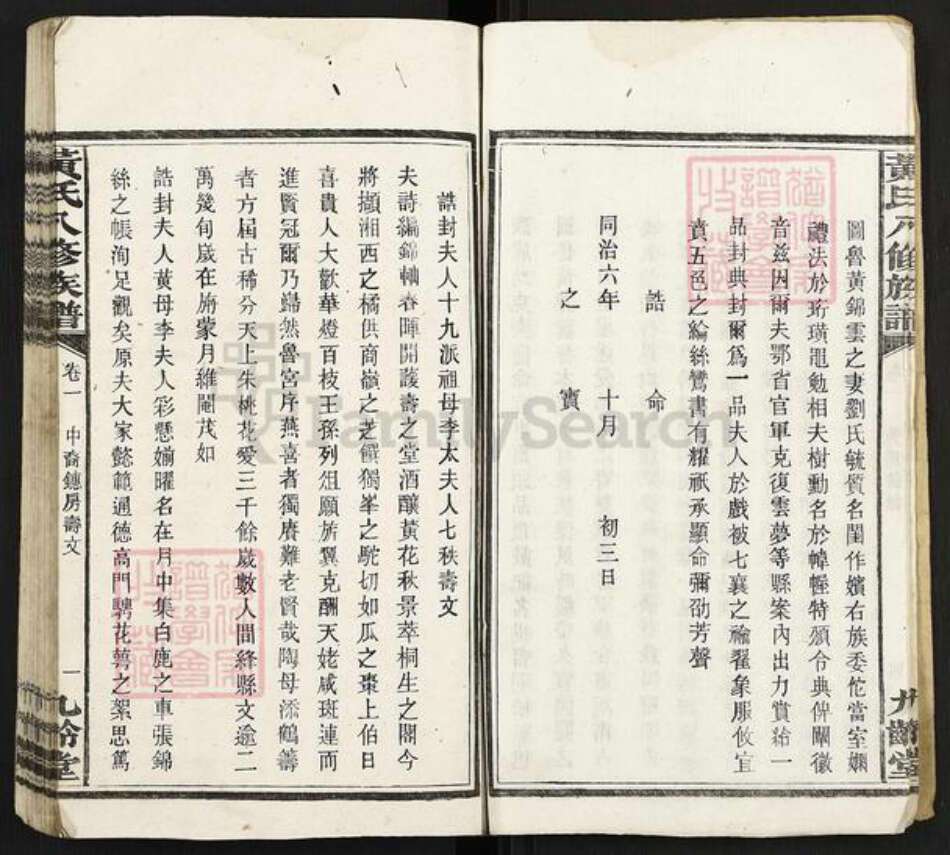 圖魯黃錦雲之妻劉氏毓質名閨作嬪右族委佗當室嫻
禮法於珩璜黽勉相夫樹勳名於幃幄特頒令典俾闡徽
音茲因爾夫鄂省官軍克復雲夢等縣案內出力賞給一
品封典封爾爲一品夫人於戲被七襄之褕翟象服攸宜
賁五色之綸絲鸞書有耀祇承顯命彌劭芳聲
誥命
同治六年 十月 初三日
之寶
黃氏八修族譜
九齡堂
誥封夫人十九派祖母李太夫人七秩壽文
夫詩編錦軸春暉開護壽之堂酒釀黃花秋景萃桐生之閣今
將擷湘西之橘供商嶺之芝饌獨峯之駝切如瓜之棗上伯日
喜貴人大歡華燈百枝王孫列俎願旂翼克酬天姥咸班連而
進賢冠爾乃巋然魯宮序燕喜者獨賡難老賢哉陶母添鶴籌
者方屆古稀分天上朱桃花愛三千餘歲數人間絳縣文逾二
萬幾旬歲在旃蒙月維閹茂如
誥封夫人黃母李夫人彩懸婺曜名在月中集白鹿之車張錦
絲之帳洵足觀矣原夫大家懿範通德高門騁花萼之絮思篤
黃氏八修族譜
卷一
中裔鏸房壽文
一
九齡堂
FamilySearch